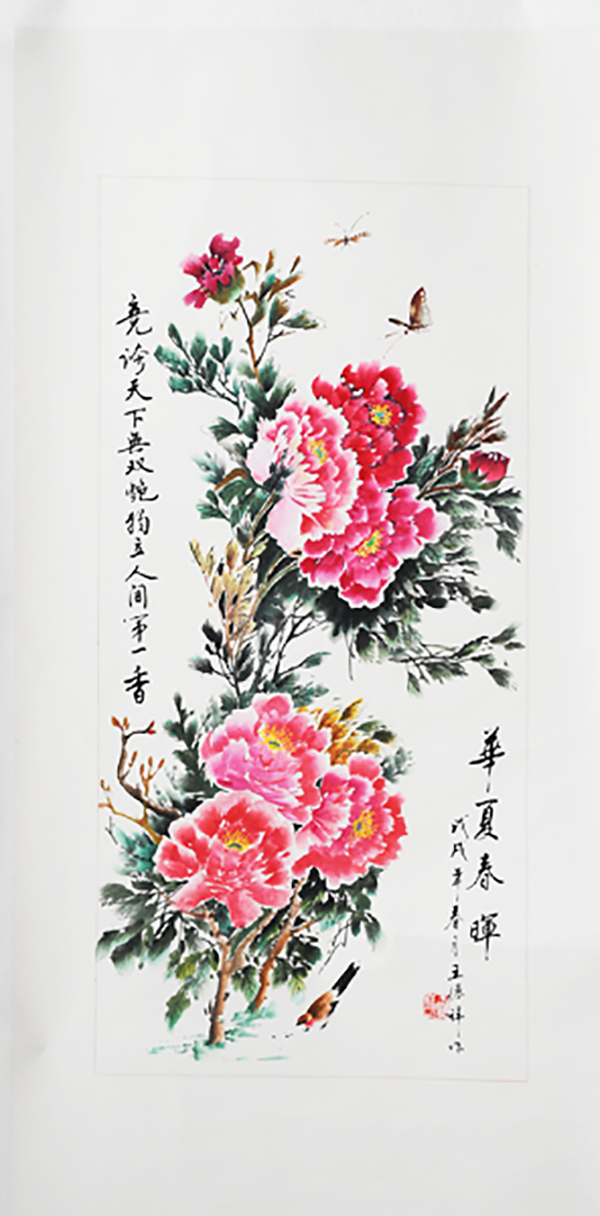 華夏春暉
戊戌年春月王德祥作
竞誇天下無双艳独立人间第一香